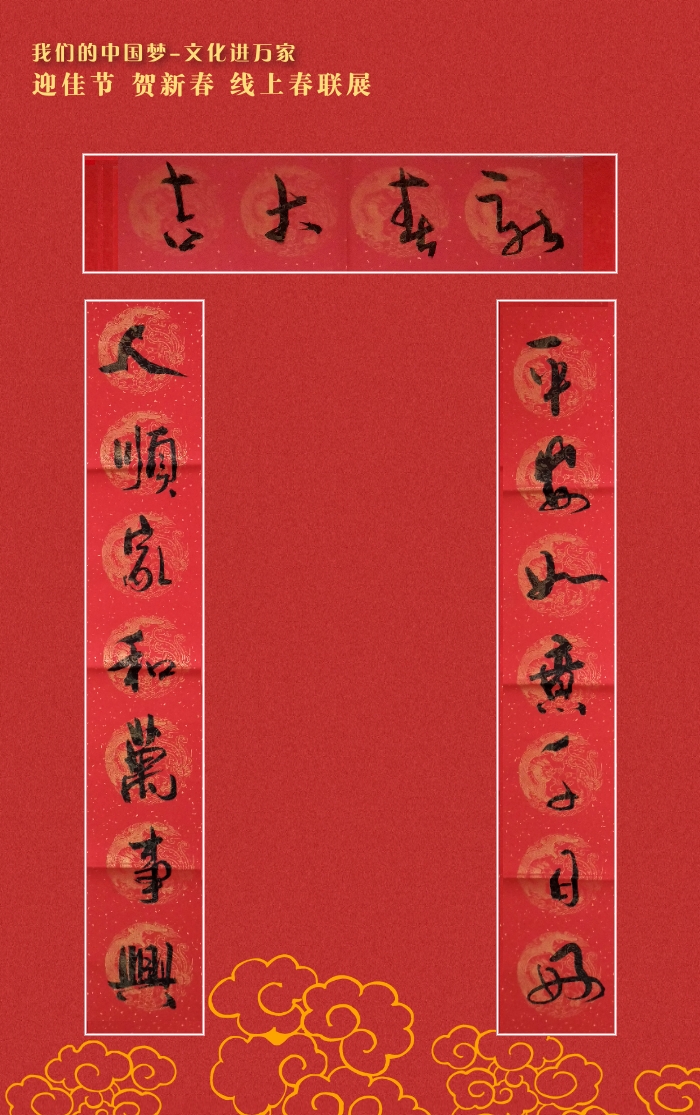 我们的中国梦-文化进万家
迎佳节 贺新春 线上春联展
新春大吉
平安如意千日好
人順家和萬事興